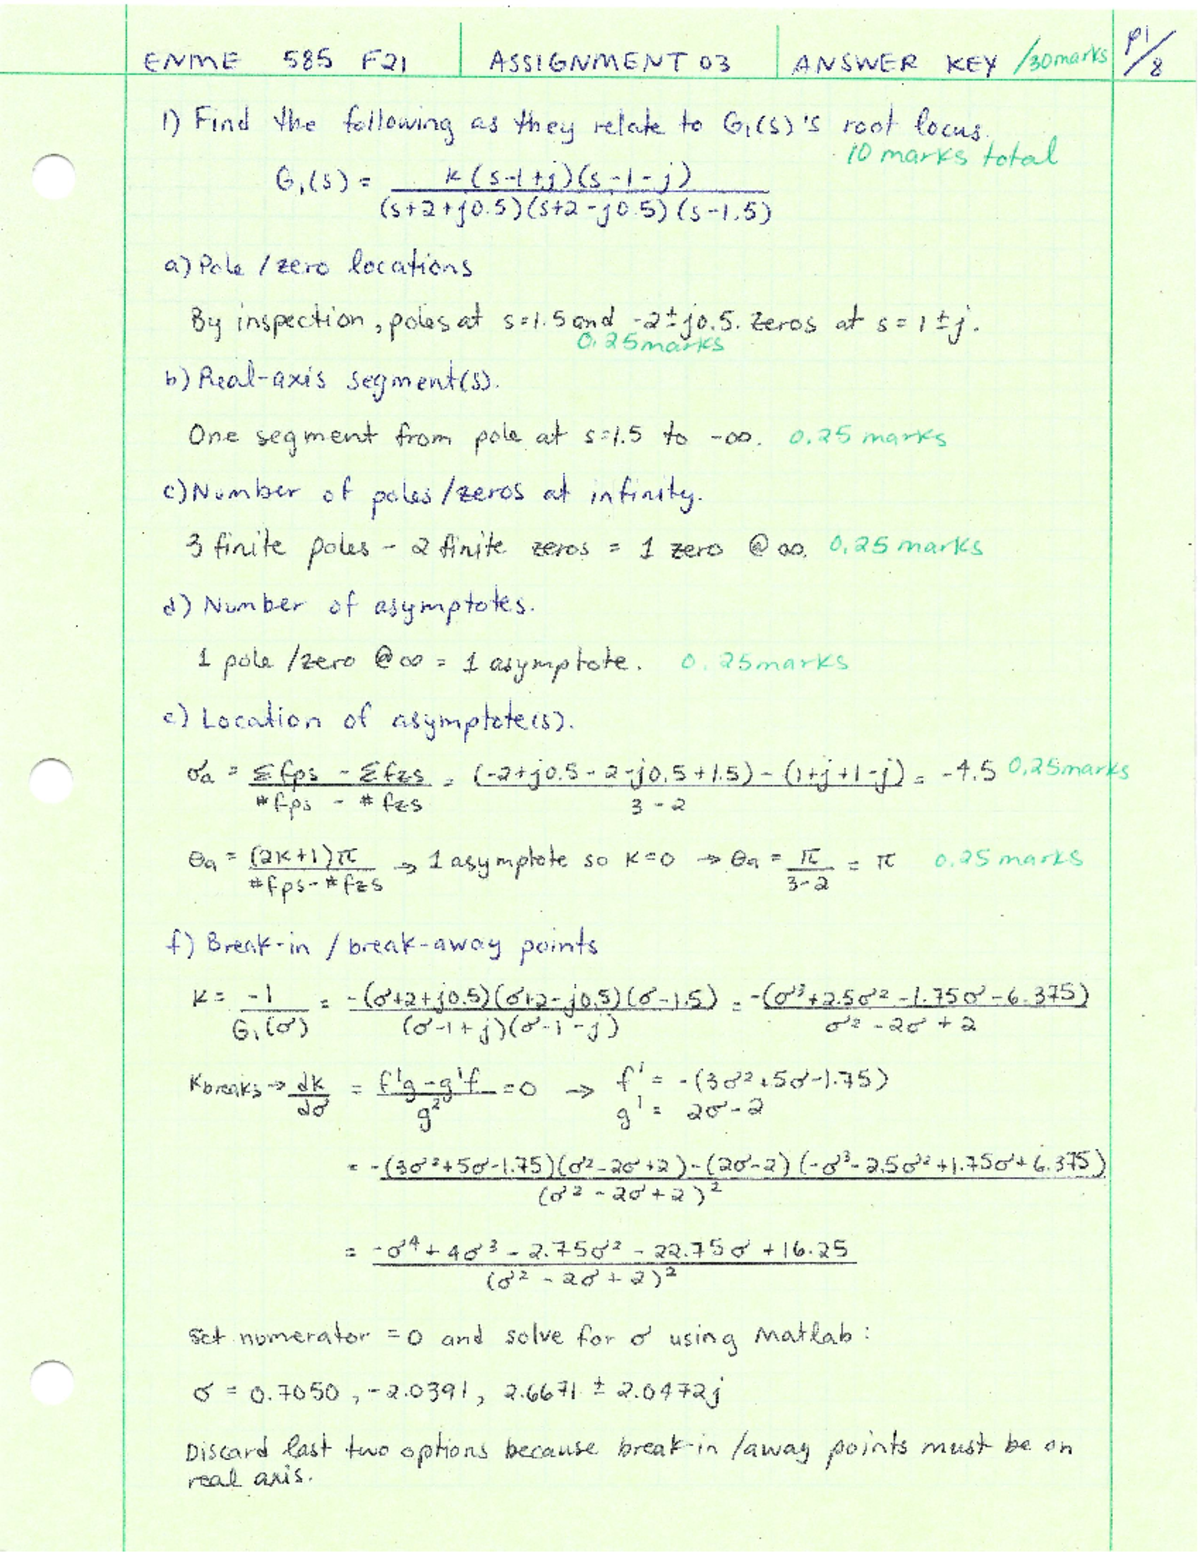 ENME 585 F21 ASSIGNMENT 03 ANSWER KEY /30marks P1/8
1) Find the following as they relate to G₁(s)'s root locus.
10 marks total
G₁(s) = K(s-1+j)(s-1-j) / (s+2+j0.5)(s+2-j0.5)(s-1.5)
a) Pole/zero locations
By inspection, poles at s=1.5 and -2±j0.5. Zeros at s=1±j.
0.25marks
b) Real-axis segment(s).
One segment from pole at s=1.5 to -∞. 0.25 marks
c) Number of poles/zeros at infinity.
3 finite poles - 2 finite zeros = 1 zero @ ∞. 0.25 marks
d) Number of asymptotes.
1 pole/zero @ ∞ = 1 asymptote. 0.25marks
e) Location of asymptote(s).
σa = Σfps - Σfzs / #fps - #fzs = (-2+j0.5-2-j0.5+1.5)-(1+j+1-j) / 3-2 = -4.5 0.25marks
θa = (2K+1)π / #fps-#fzs → 1 asymptote so K=0 → θa = π / 3-2 = π 0.25 marks
f) Break-in / break-away points
K = -1 / G₁(σ) = -(σ+2+j0.5)(σ+2-j0.5)(σ-1.5) / (σ-1+j)(σ-1-j) = -(σ³+2.5σ²-1.75σ-6.375) / σ²-2σ+2
Kbreaks → dK/dσ = f'g-g'f / g² = 0 → f' = -(3σ²+5σ-1.75)
g' = 2σ-2
= -(3σ²+5σ-1.75)(σ²-2σ+2)-(2σ-2)(-σ³-2.5σ²+1.75σ+6.375) / (σ²-2σ+2)²
= -σ⁴+4σ³-2.75σ²-22.75σ+16.25 / (σ²-2σ+2)²
Set numerator = 0 and solve for σ using Matlab:
σ = 0.7050, -2.0391, 2.6671 ± 2.0472j
Discard last two options because break-in/away points must be on
real axis.